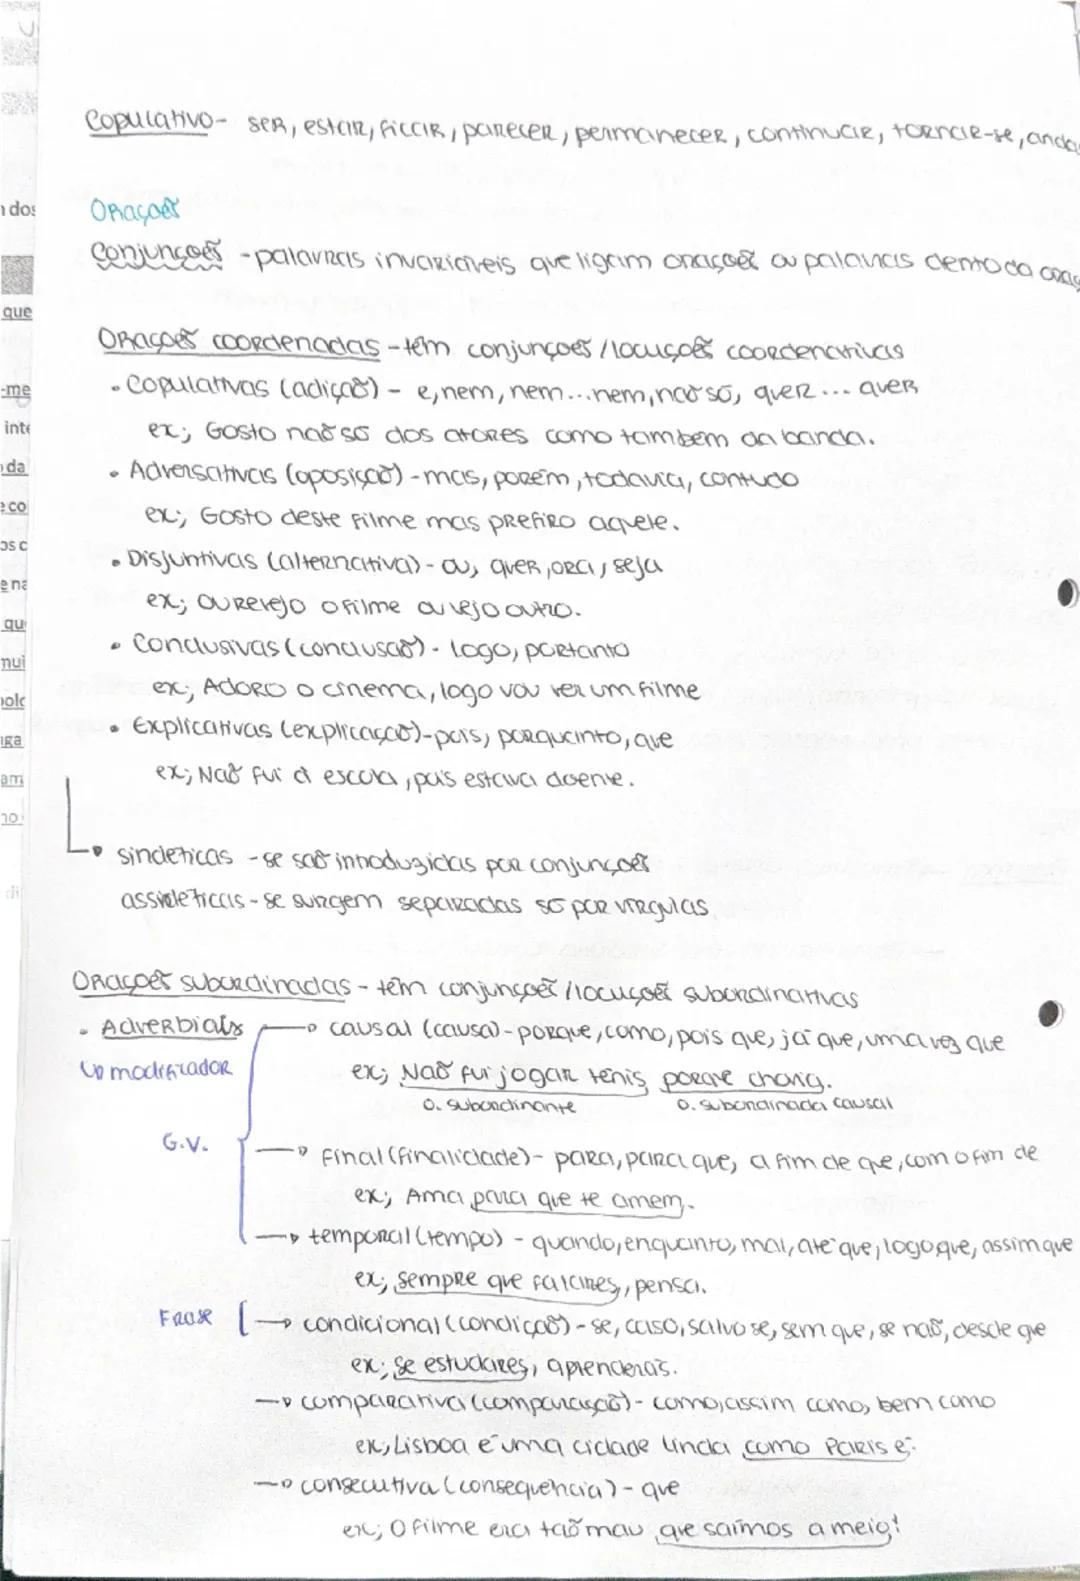 Copulativo- ser, estar, ficar, parecer, permanecer, continuar, tornar-se, anda
Orações
Conjunções - palavras invariáveis que ligam orações ou palavras dentro da oraç
Orações coordenadas - têm conjunções / locuções coordenativas
• Copulativas (adição) - e, nem, nem...nem, não só, quer... quer
ex; Gosto não só dos atores como também da banda.
• Adversativas (oposição) - mas, porém, todavia, contudo
ex; Gosto deste filme mas prefiro aquele.
• Disjuntivas (alternativa) - ou, quer, ora, seja
ex; Ou revejo o filme ou vejo outro.
• Conclusivas (conclusão) - logo, portanto
ex; Adoro o cinema, logo vou ver um filme
• Explicativas (explicação) - pois, porquanto, que
ex; Não fui à escola, pois estava doente.
sindeticas - se são introduzidas por conjunções
assideticas - se surgem separadas só por vírgulas
Orações subordinadas - têm conjunções / locuções subordinativas
• Adverbiais → causal (causa) - porque, como, pois que, já que, uma vez que
modificador ex; Não fui jogar ténis porque chovia.
O. subordinante O. subordinada causal
G.V. → final (finalidade) - para, para que, a fim de que, com o fim de
ex; Ama para que te amem.
→ temporal (tempo) - quando, enquanto, mal, até que, logo que, assim que
ex; sempre que falares, pensa.
Frase [ → condicional (condição) - se, caso, salvo se, sem que, se não, desde que
ex; se estudares, aprenderás.
→ comparativa (comparação) - como, assim como, bem como
ex; Lisboa é uma cidade linda como Paris é.
→ consecutiva (consequência) - que
ex; O filme era tão mau que saímos a meio!
n dos
que
-me
inte
da
e co
os c
e na
qu
mui
iga
am
no
di